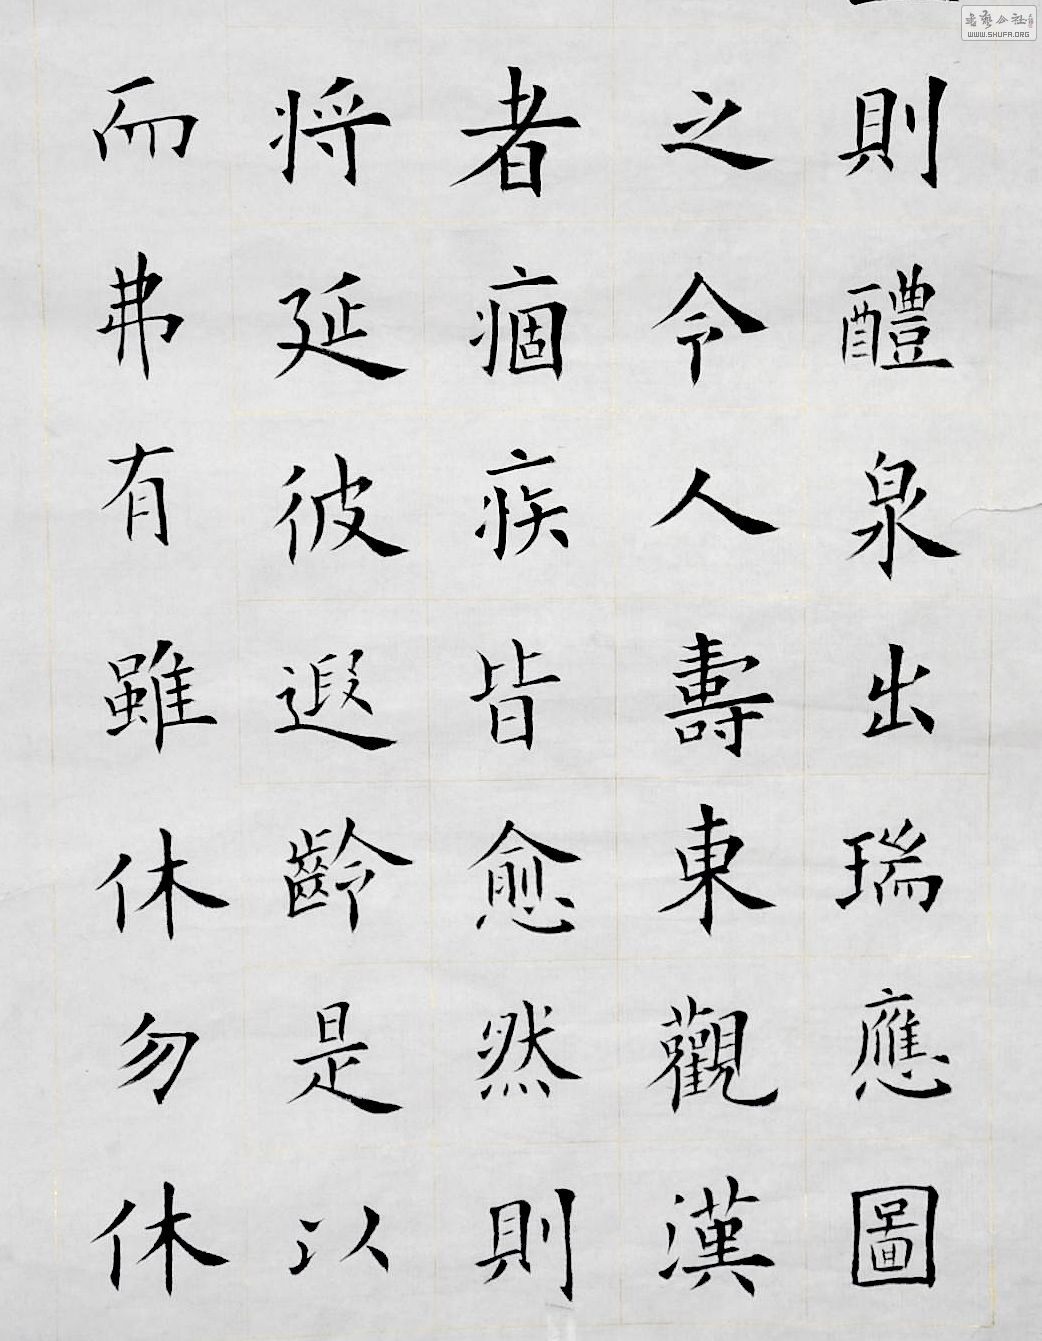 則醴泉出瑞應圖
之令人壽東觀漢
者痼疾皆愈然則
将延彼遐齡是以
而弗有雖休勿休
WWW.SHUFA.ORG